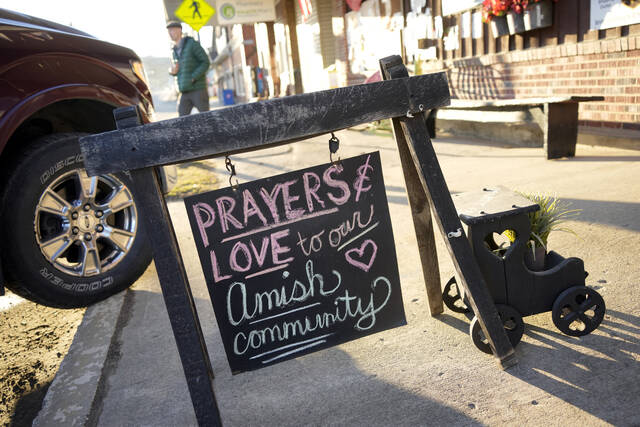 PRAYERS &
LOVE to our
Amish
community
DISCO
COOPER